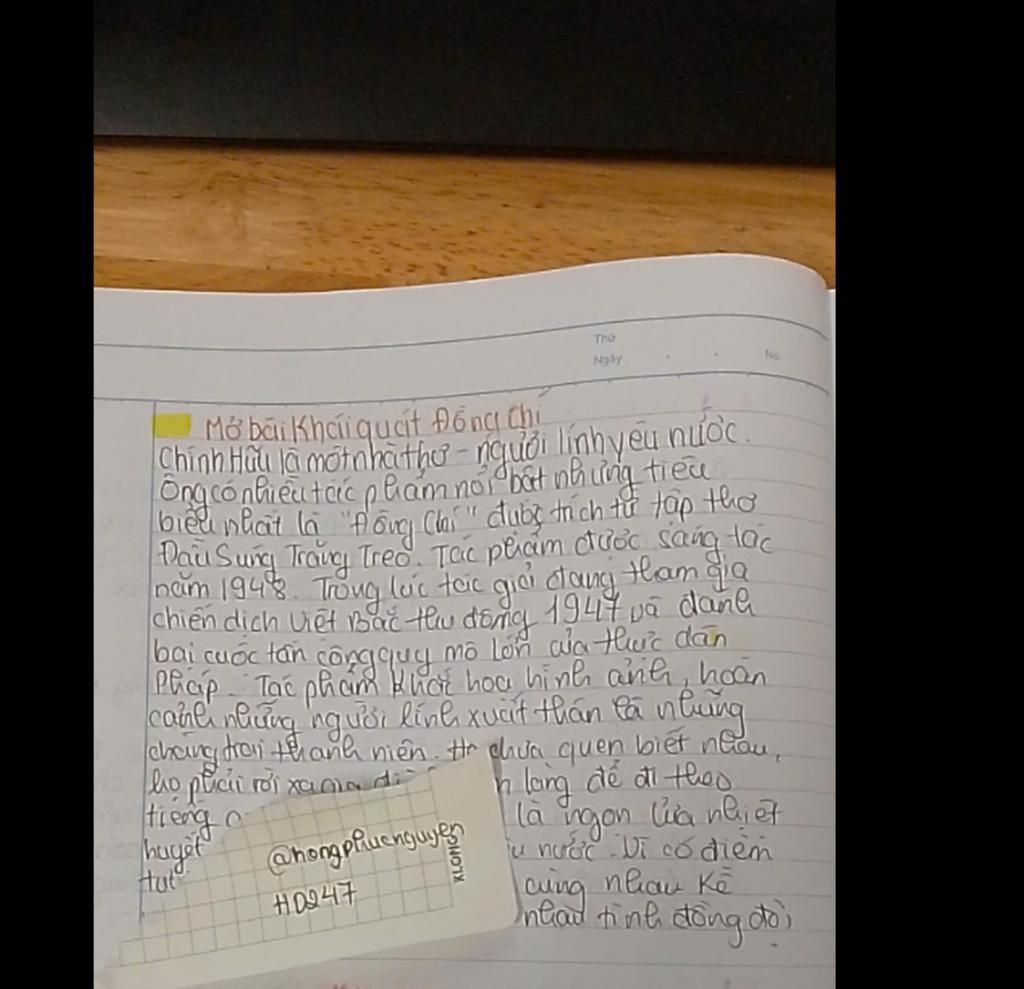 Thứ
Ngày
No
Mở bài Khái quát Đồng Chí
Chính Hữu là một nhà thơ - người lính yêu nước.
Ông có nhiều tác phẩm nổi bật nhưng tiêu
biểu nhất là "Đồng Chí" được trích từ tập thơ
Đầu Súng Trăng Treo. Tác phẩm được sáng tác
năm 1948. Trong lúc tác giả đang tham gia
chiến dịch Việt Bắc thu đông 1947 và đánh
bại cuộc tấn công quy mô lớn của thực dân
Pháp. Tác phẩm khắc hoạ hình ảnh, hoàn
cảnh những người lính xuất thân là những
chàng trai thanh niên. Họ chưa quen biết nhau,
họ phải rời xa làng để đi theo
tiếng là ngọn lửa nhiệt
huyết nước. Vì có điểm
cùng nhau kề
nhau tình đồng đội
@hongphucnguyen
HD247
KLONG